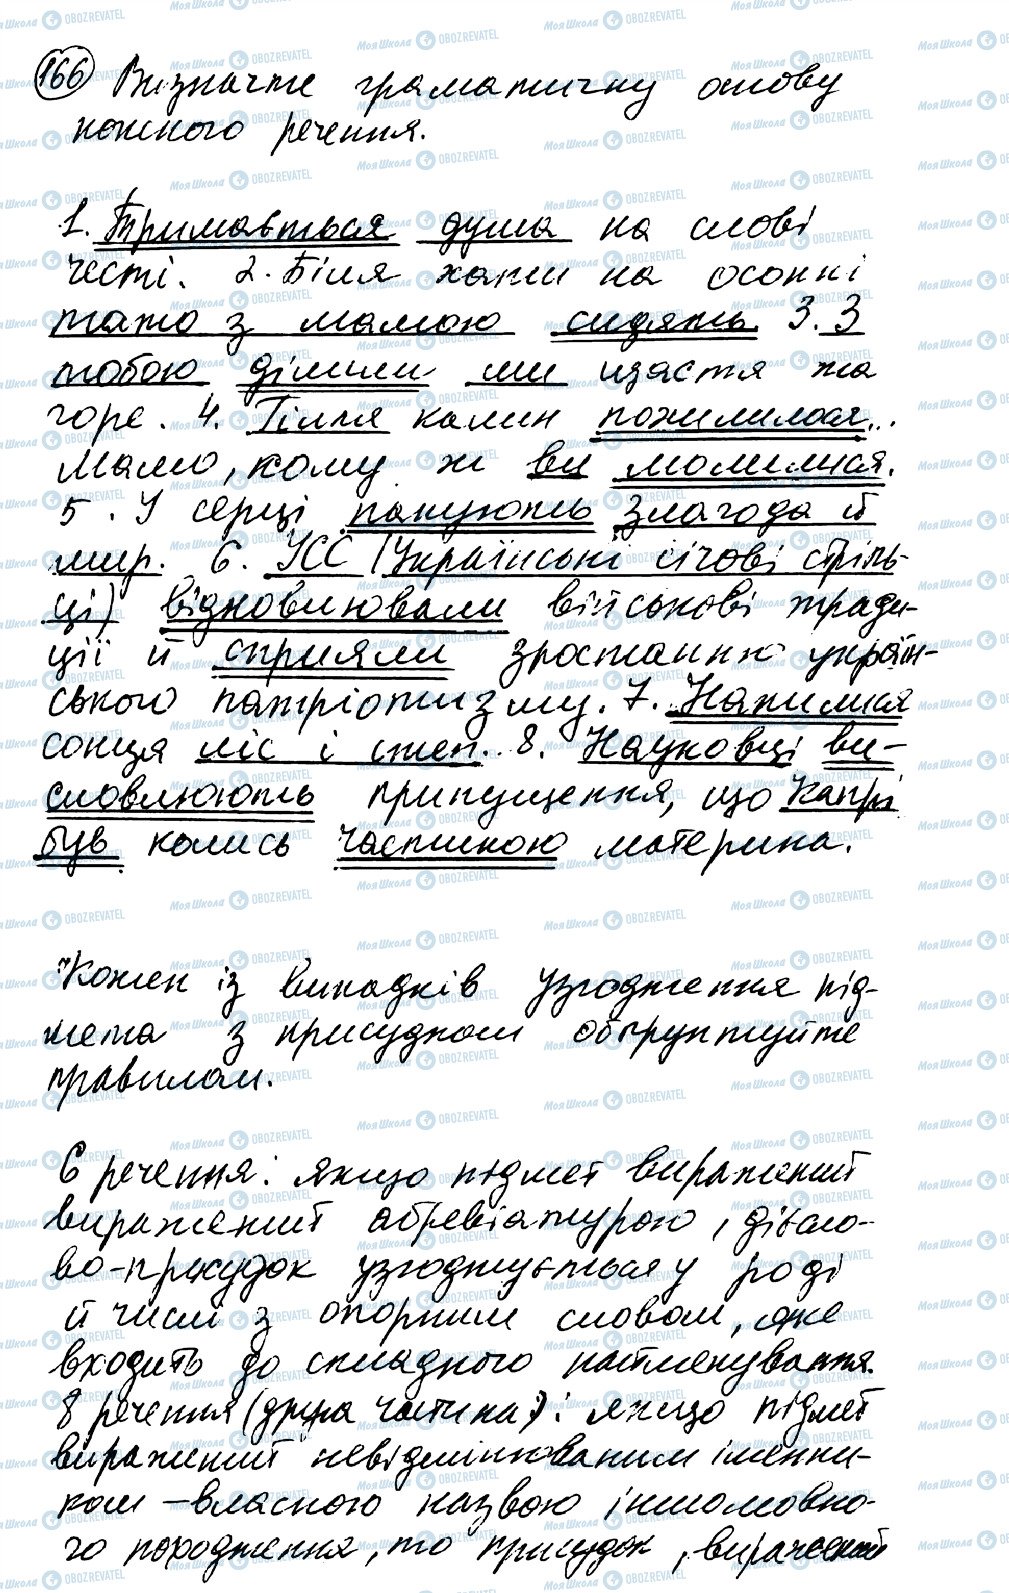 166 Визначте граматичну основу
кожного речення.
1. Тримається душа на слові
честі. 2. Біля хати на осонні
тато з мамою сидять. 3. З
тобою ділили ми щастя та
горе. 4. Гілля калин похилилося...
Мамо, кому ж ви молилися.
5. У серці панують злагода й
мир. 6. УСС (Українські січові стріль-
ці) відновлювали військові тради-
ції й сприяли зростанню україн-
ського патріотизму. 7. Напилися
сонця ліс і степ. 8. Науковці ви-
словлюють припущення, що Капрі
був колись частиною материка.
Кожен із випадків узгодження під-
мета з присудком обґрунтуйте
правилом.
6 речення: якщо підмет виражений
виражений абревіатурою, дієсло-
во-присудок узгоджується у роді
й числі з опорним словом, яке
входить до складного найменування.
8 речення (друга частина): якщо підмет
виражений невідмінюваним іменни-
ком – власною назвою іншомовно-
го породження, то присудок, виражений